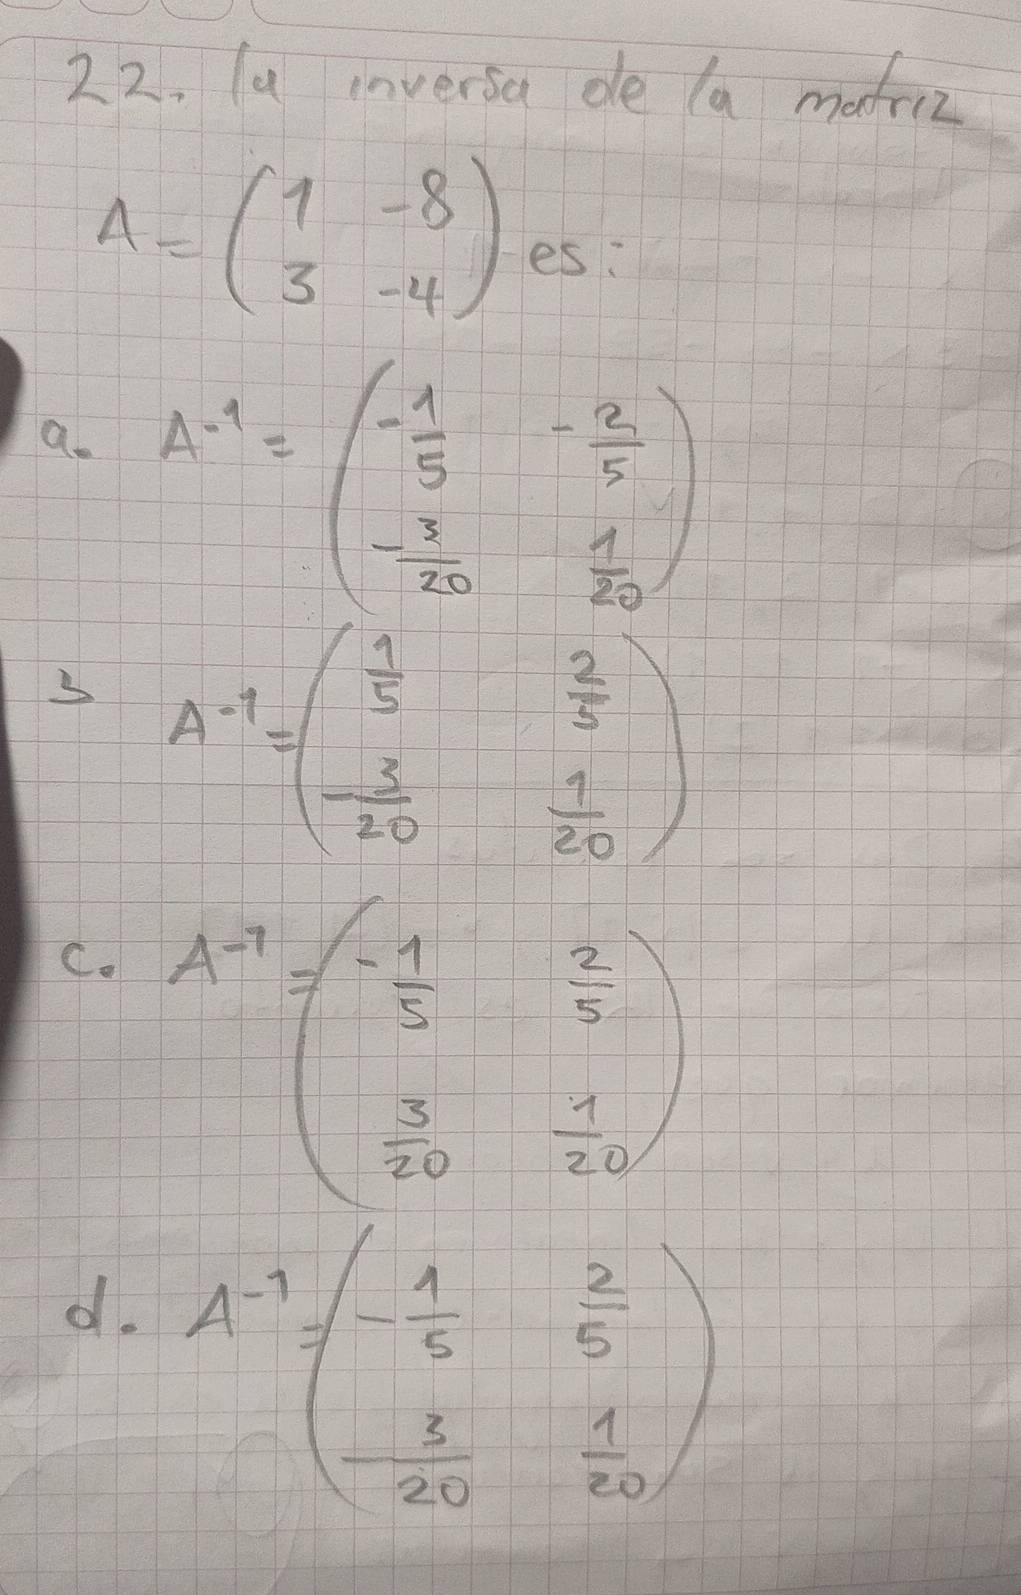 22. la inversa de la matriz
A = (1 -8
3 -4) es:
a. A⁻¹ = (-1/5 -2/5
-3/20 1/20)
b A⁻¹ = (1/5 2/5
-3/20 1/20)
c. A⁻¹ = (-1/5 2/5
3/20 1/20)
d. A⁻¹ = (-1/5 2/5
-3/20 1/20)